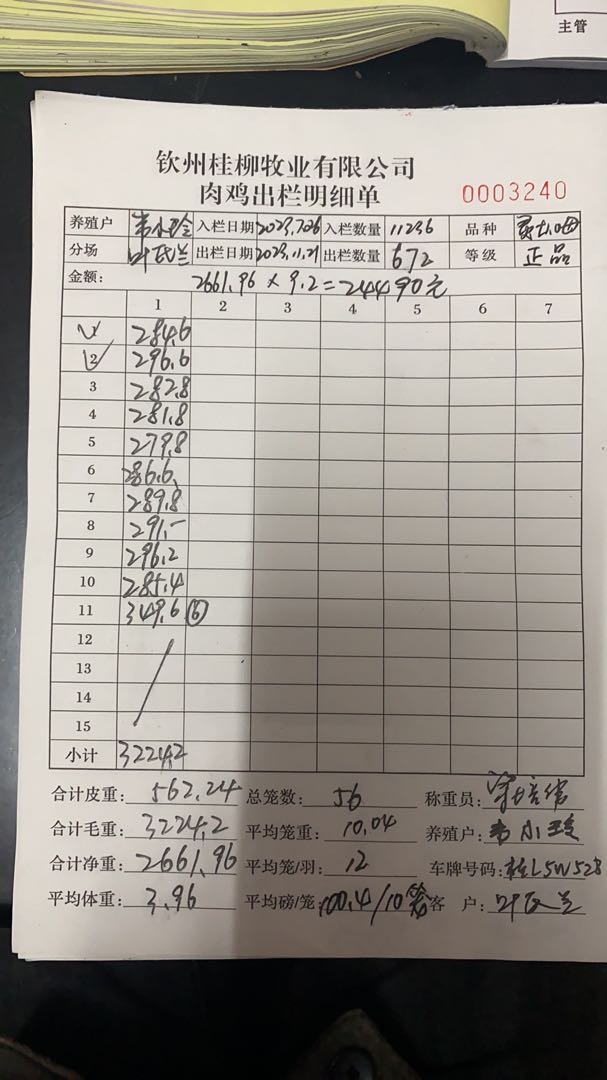 主管
钦州桂柳牧业有限公司
肉鸡出栏明细单
0003240
养殖户 韦小玲 入栏日期 2023.7.26 入栏数量 11236 品种
分场 叶氏兰 出栏日期 2023.11.21 出栏数量 672 等级 正品
金额: 2661.96 × 9.2 = 24490元
1 2 3 4 5 6 7
1 284.6
2 296.6
3 282.8
4 281.8
5 279.8
6 286.6
7 289.8
8 291.-
9 296.2
10 285.4
11 349.6 ⑥
12
13
14
15
小计 3224.2
合计皮重: 562.24 总笼数: 56 称重员:
合计毛重: 3224.2 平均笼重: 10.04 养殖户: 韦小玲
合计净重: 2661.96 平均笼/羽: 12 车牌号码: 桂L5W528
平均体重: 3.96 平均磅/笼: 100.4/10笼 客户: 叶氏兰